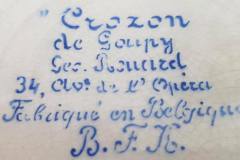 "Crozon
de Goupy
Geo. Rouard
34, Av. de l'Opéra
Fabriqué en Belgique
B.F.K.